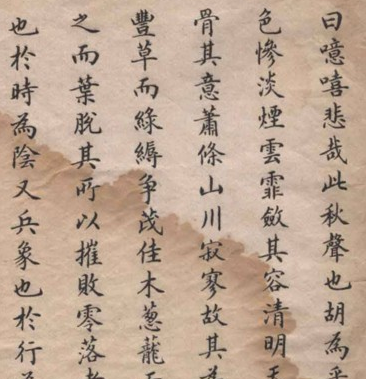 曰噫嘻悲哉此秋聲也胡為乎
色慘淡煙雲霏斂其容清明天
骨其意蕭條山川寂寥故其為
豐草而綠縟爭茂佳木蔥蘢而
之而葉脫其所以摧敗零落者
也於時為陰又兵象也於行為